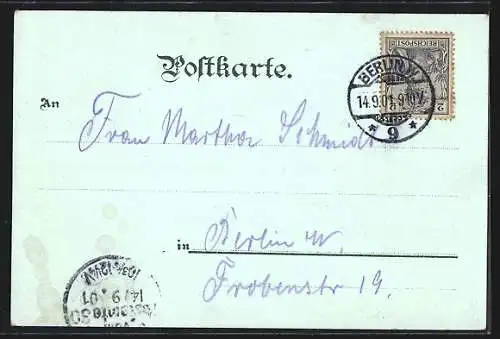 Postkarte.
REICHSPOST
BERLIN W.
14.9.01. 9-10V.
* 9 *
An
Frau Martha Schmidt
in Berlin W.
Frobenstr 19.
14/9 01